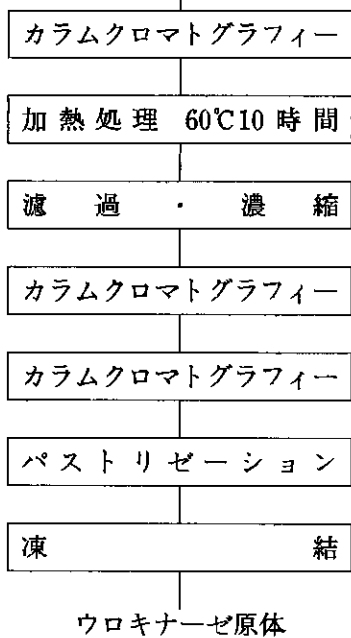 カラムクロマトグラフィー
加熱処理 60℃10時間
濾過・濃縮
カラムクロマトグラフィー
カラムクロマトグラフィー
パストリゼーション
凍結
ウロキナーゼ原体